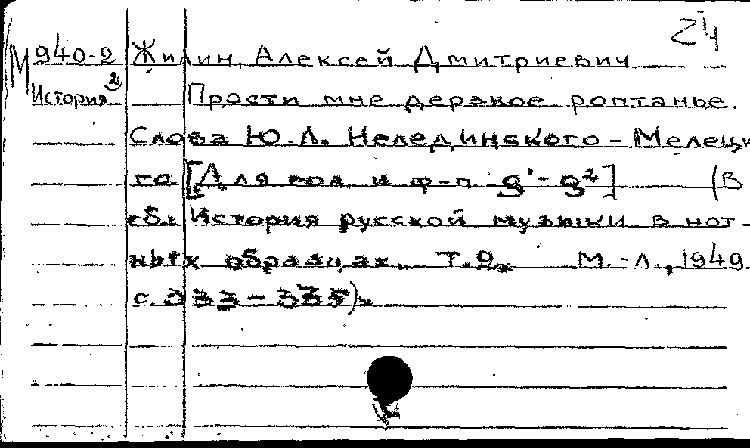 М 940-2 Жилин, Алексей Дмитриевич
История 2 Прости мне дерзкое роптанье.
Слова Ю.А. Нелединского-Мелецко
го [Для гол. и ф-п. g¹-g²] (В
сб.: История русской музыки в нот-
ных образцах. Т.2. М.-Л., 1949
с. 333-335).